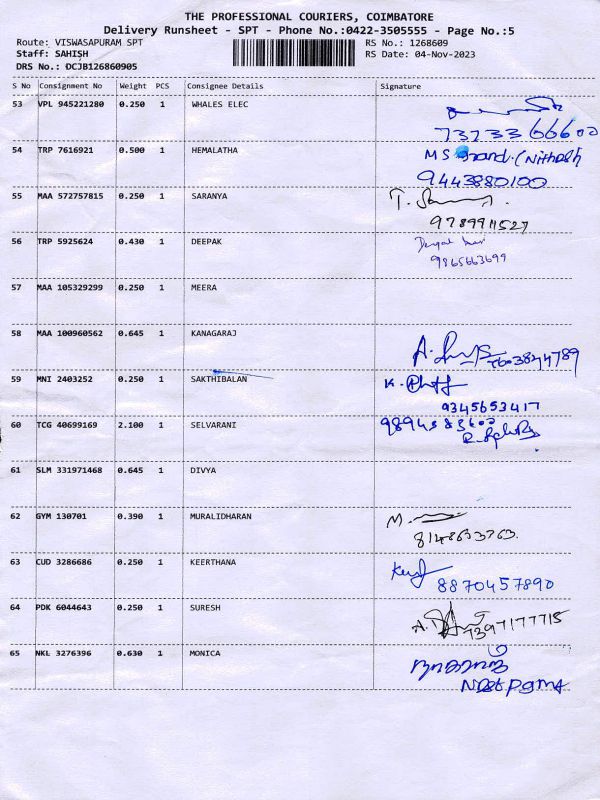 THE PROFESSIONAL COURIERS, COIMBATORE
Delivery Runsheet - SPT - Phone No.:0422-3505555 - Page No.:5
Route: VISWASAPURAM SPT RS No.: 1268609
Staff: SAHISH RS Date: 04-Nov-2023
DRS No.: DCJB126860905
S No Consignment No Weight PCS Consignee Details Signature
53 VPL 945221280 0.250 1 WHALES ELEC
7373366600
54 TRP 7616921 0.500 1 HEMALATHA M S
9443880100
55 MAA 572757815 0.250 1 SARANYA T.
9789911527
56 TRP 5925624 0.430 1 DEEPAK
9865663699
57 MAA 105329299 0.250 1 MEERA
58 MAA 100960562 0.645 1 KANAGARAJ A.
59 MNI 2403252 0.250 1 SAKTHIBALAN K.
9345653417
60 TCG 40699169 2.100 1 SELVARANI
61 SLM 331971468 0.645 1 DIVYA
62 GYM 130701 0.390 1 MURALIDHARAN M.
63 CUD 3286686 0.250 1 KEERTHANA
8870457890
64 PDK 6044643 0.250 1 SURESH A.
7397177715
65 NKL 3276396 0.630 1 MONICA